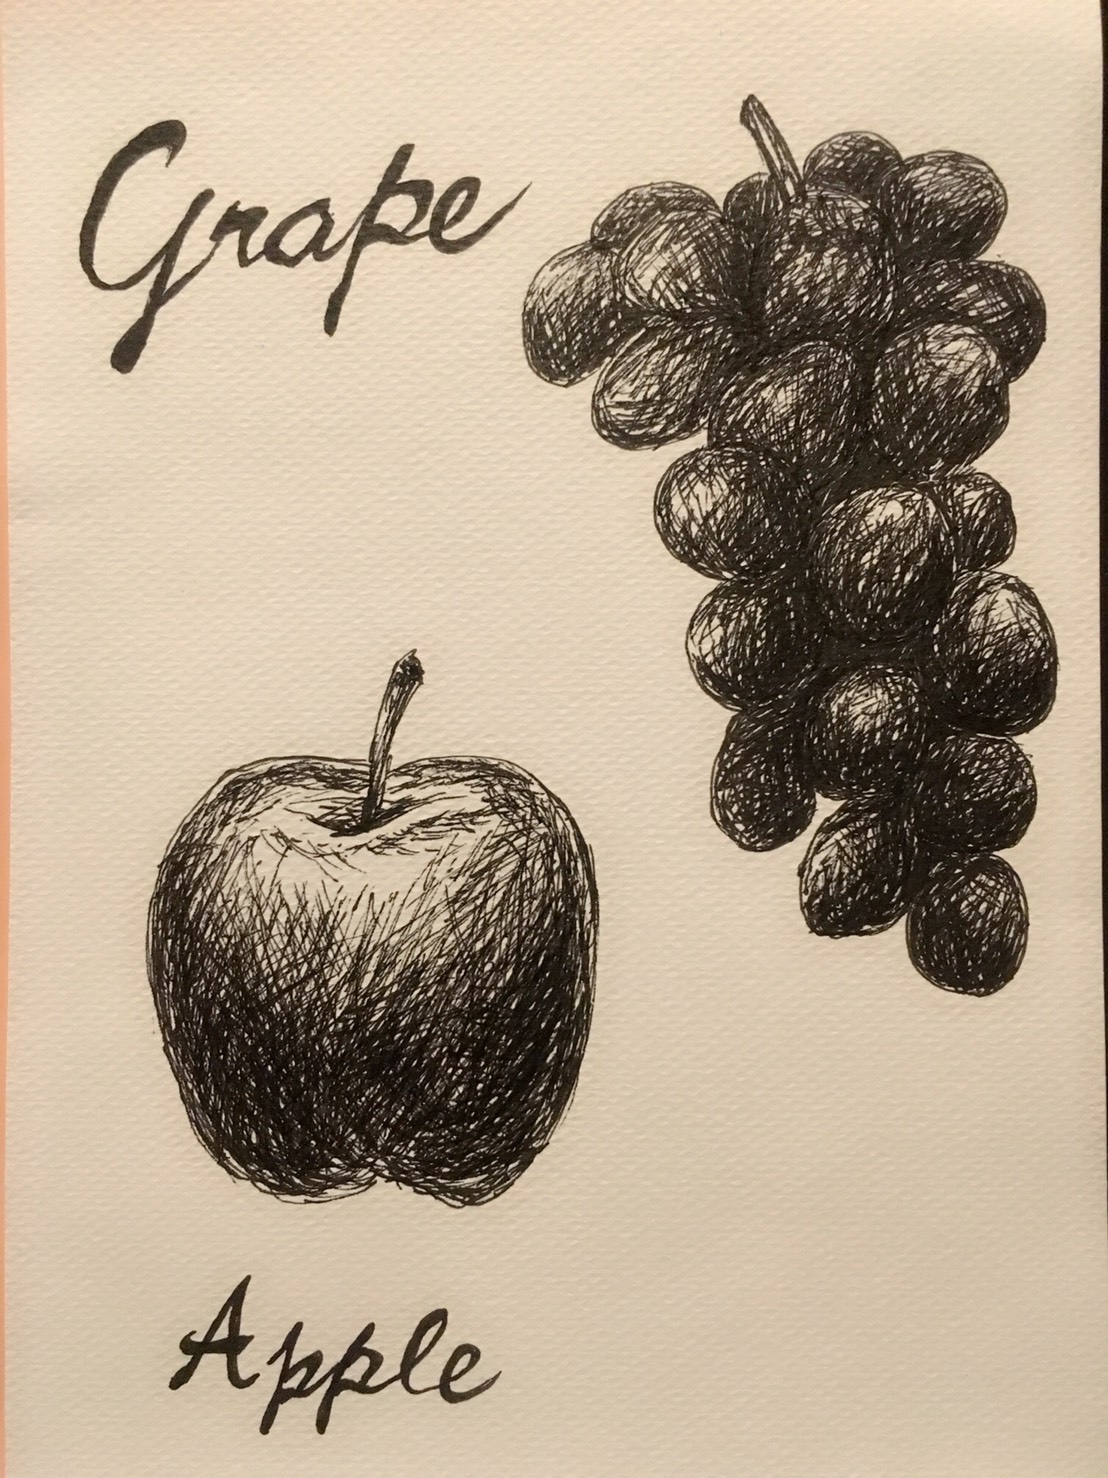 Grape
Apple